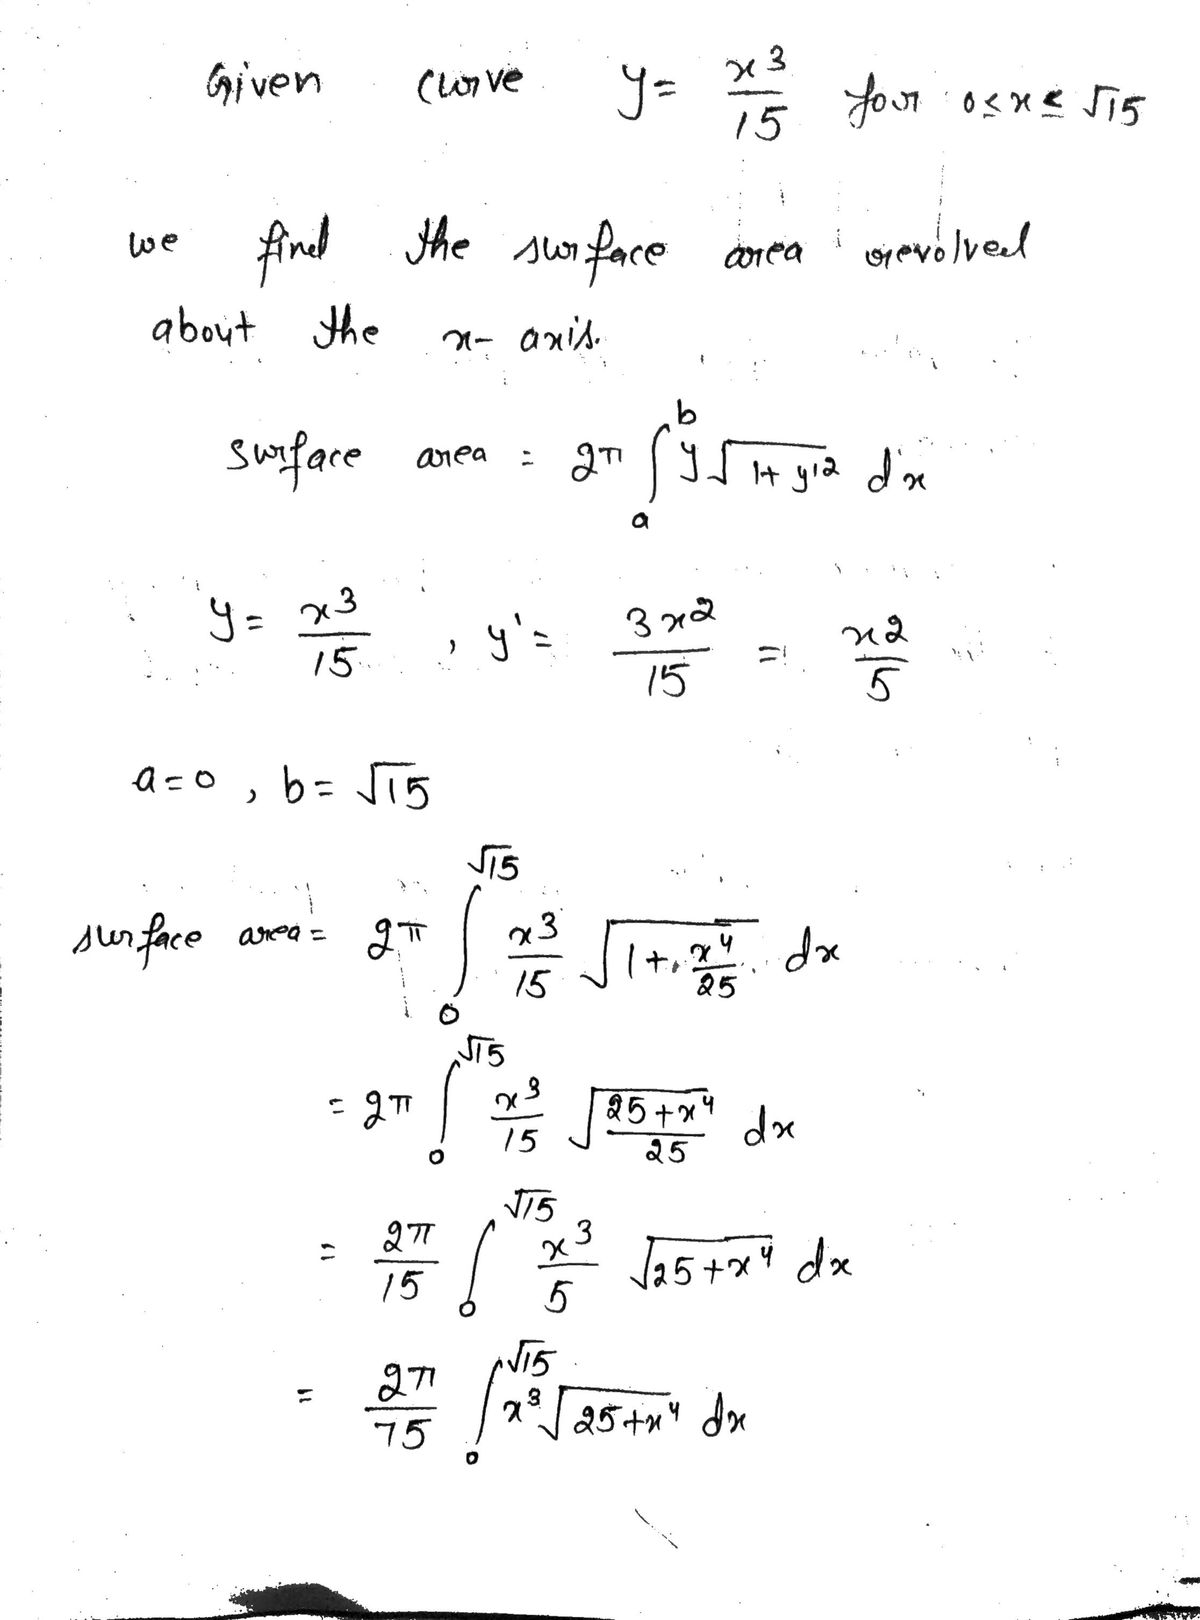 Given curve y = x³/15 for 0 ≤ x ≤ √15
we find the surface area revolved
about the x- axis.
surface area = 2π ∫ₐᵇ y √(1+y'²) dx
y = x³/15 , y' = 3x²/15 = x²/5
a=0 , b= √15
surface area = 2π ∫₀^√15 x³/15 √(1+x⁴/25) dx
= 2π ∫₀^√15 x³/15 √((25+x⁴)/25) dx
= 2π/15 ∫₀^√15 x³/5 √(25+x⁴) dx
= 2π/75 ∫₀^√15 x³√(25+x⁴) dx